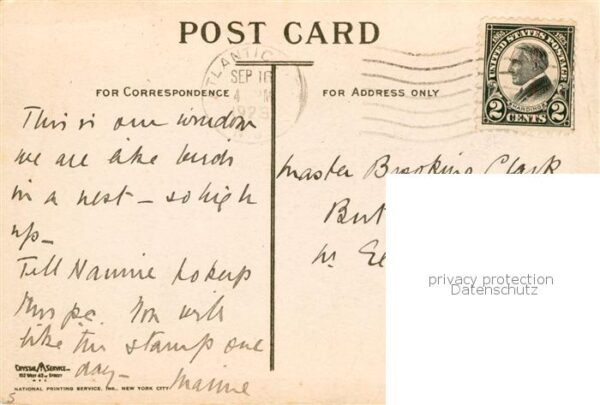 POST CARD
ATLANTIC
SEP 16
4 PM
1923
UNITED STATES POSTAGE
HARDING
2 CENTS 2
FOR CORRESPONDENCE
FOR ADDRESS ONLY
This is our window
we are like birds
in a nest – so high
up –
Tell Nannie to keep
this pc. You will
like this stamp one
day –
Master Brooking Clark
But
W.
privacy protection
Datenschutz
CRYSTAL SERVICE
NATIONAL PRINTING SERVICE, INC., NEW YORK CITY
5